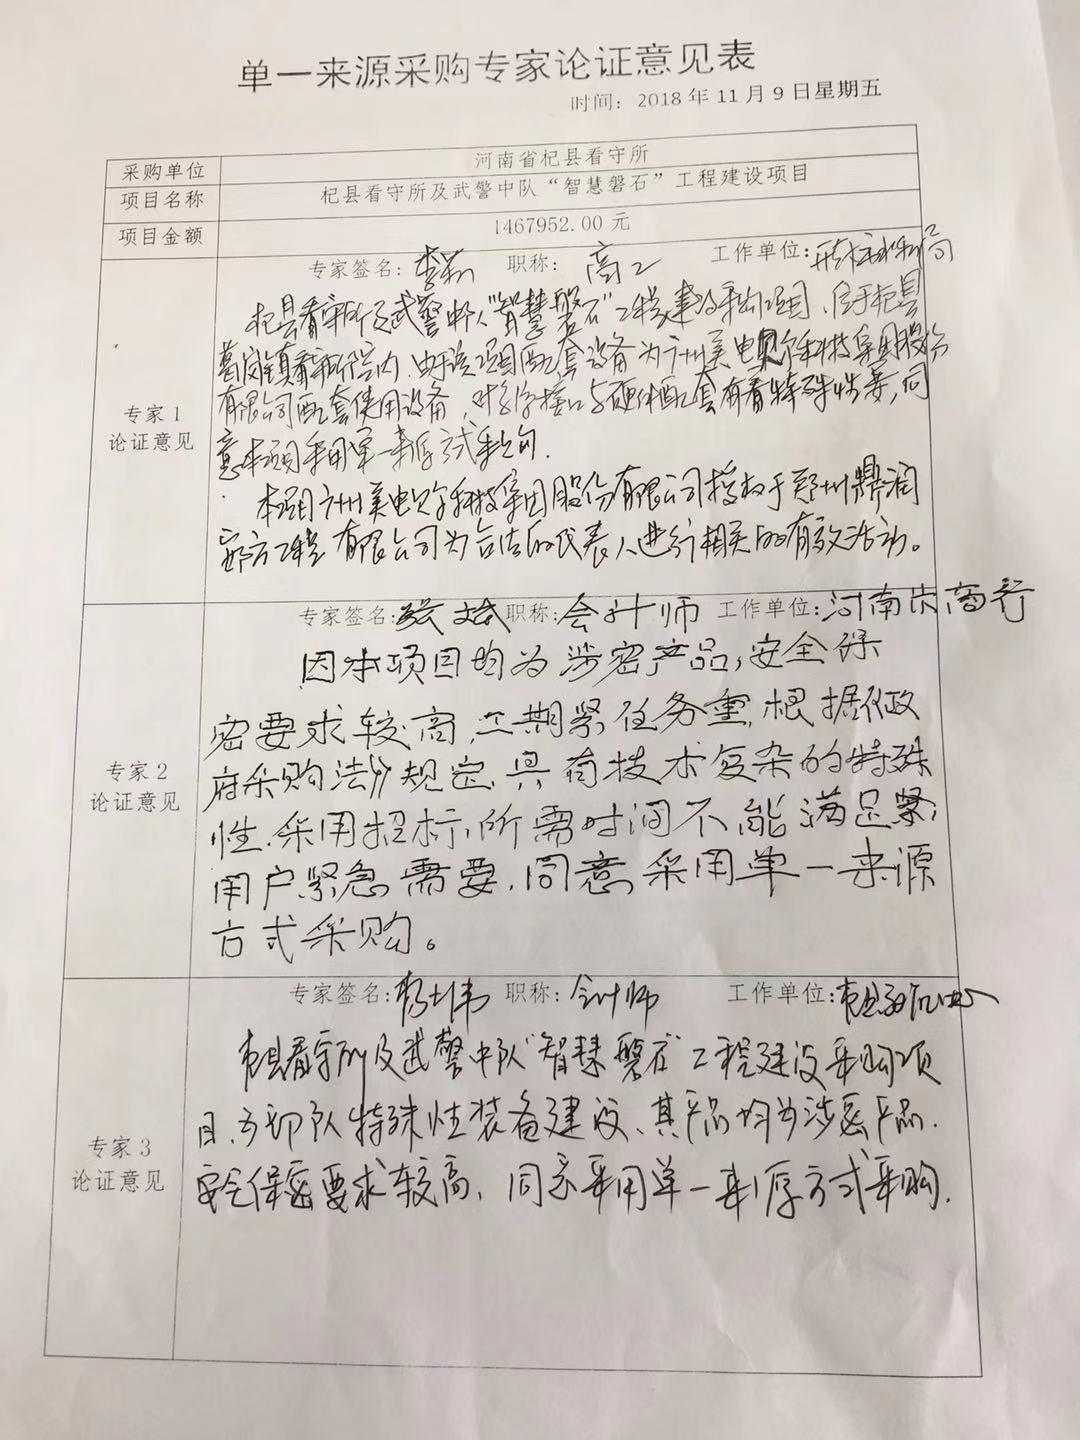 单一来源采购专家论证意见表
时间：2018年11月9日星期五
采购单位 河南省杞县看守所
项目名称 杞县看守所及武警中队“智慧磐石”工程建设项目
项目金额 1467952.00元
专家签名： 职称：高工 工作单位：
杞县看守所及武警中队“智慧磐石”工程建设采购项目，位于杞县
葛岗镇看守所院内，由于该项目配套设备为广州美电贝尔科技集团股份
专家1
有限公司配套使用设备，对接口与硬件配套有着特殊性要，同
论证意见
意本项目采用单一来源方式采购。
本项目广州美电贝尔科技集团股份有限公司授权于郑州鼎润
工程有限公司为合法的代表人进行相关的有效活动。
专家签名： 职称：会计师 工作单位：河南农商行
因本项目均为涉密产品，安全保
密要求较高，工期紧任务重，根据《政
专家2
府采购法》规定，具有技术复杂的特殊
论证意见
性，采用招标所需时间不能满足紧
用户紧急需要，同意采用单一来源
方式采购。
专家签名： 职称：会计师 工作单位：
杞县看守所及武警中队“智慧磐石”工程建设采购项
目，为部队特殊性装备建设，其产品均为涉密产品，
专家3
安全保密要求较高，同意采用单一来源方式采购。
论证意见